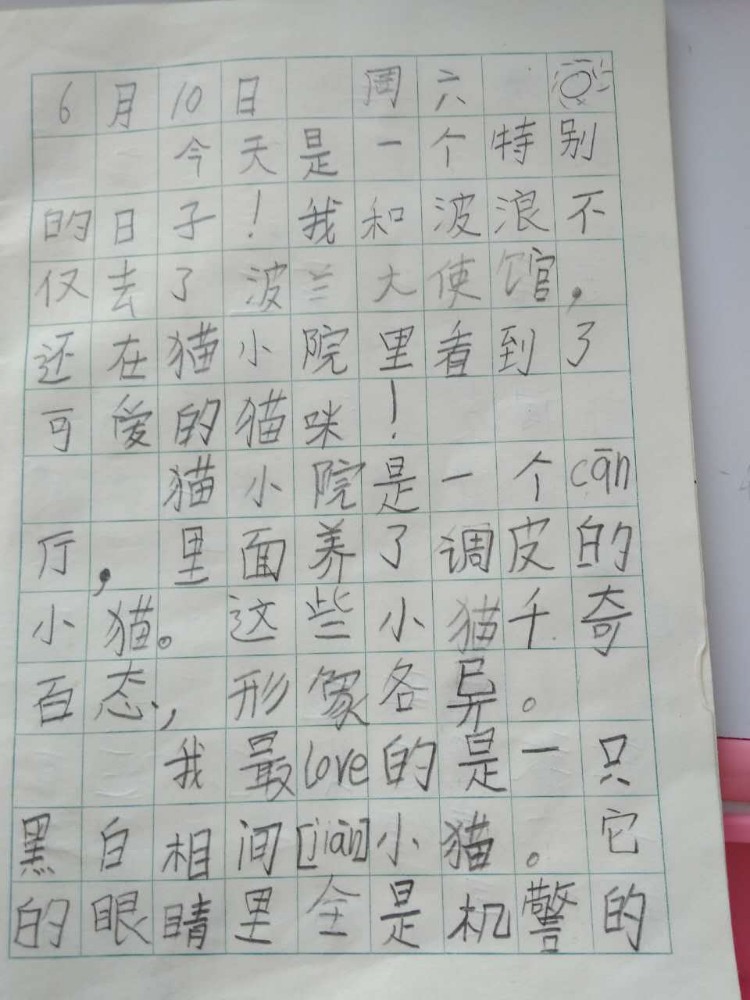 6月10日 周六
今天是一个特别
的日子！我和波浪不
仅去了波兰大使馆，
还在猫小院里看到了
可爱的猫咪！
猫小院是一个cān
厅，里面养了调皮的
小猫。这些小猫千奇
百态，形象各异。
我最love的是一只
黑白相间[jiàn]小猫。它
的眼睛里全是机警的